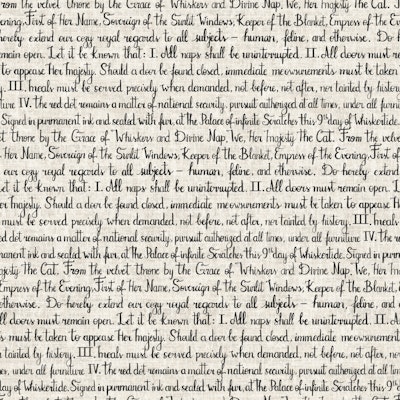 From the velvet throne by the Grace of Whiskers and Divine Nap, We, Her Majesty The Cat. F
of Her Name, Sovereign of the Sunlit Windows, Keeper of the Blanket, Empress of the Even
hereby extend our cozy royal regards to all subjects – human, feline, and otherwise. Do h
main open. Let it be known that: I. All naps shall be uninterrupted. II. All doors must re
to appease Her Majesty. Should a door be found closed, immediate meowsurements must be taken
y. III. meals must be served precisely when demanded, not before, not after, nor tainted by history
ture IV. the red dot remains a matter of national security, pursuit authorized at all times, under all furni
Signed in purrmanent ink and sealed with fur, at the Palace of infinite Scratches this 9th day of Whiskertide.
t throne by the Grace of Whiskers and Divine Nap, We, Her Majesty The Cat. From the velve
Her Name, Sovereign of the Sunlit Windows, Keeper of the Blanket, Empress of the Evening, First of H
our cozy royal regards to all subjects – human, feline, and otherwise. Do hereby extend
it be known that: I. All naps shall be uninterrupted. II. All doors must remain open. L
er Majesty. Should a door be found closed, immediate meowsurements must be taken to appease Her
must be served precisely when demanded, not before, not after, nor tainted by history. III. meals
ed dot remains a matter of national security, pursuit authorized at all times, under all furniture IV. the r
ent ink and sealed with fur, at the Palace of infinite Scratches this 9th day of Whiskertide. Signed in purrm
ajesty The Cat. From the velvet throne by the Grace of Whiskers and Divine Nap, We, Her M
Empress of the Evening, First of Her Name, Sovereign of the Sunlit Windows, Keeper of the Blanket,
otherwise. Do hereby extend our cozy royal regards to all subjects – human, feline, and
ll doors must remain open. Let it be known that: I. All naps shall be uninterrupted. II. A
s must be taken to appease Her Majesty. Should a door be found closed, immediate meowsurements
tainted by history. III. meals must be served precisely when demanded, not before, not after, nor
es, under all furniture IV. the red dot remains a matter of national security, pursuit authorized at all tim
day of Whiskertide. Signed in purrmanent ink and sealed with fur, at the Palace of infinite Scratches this 9th